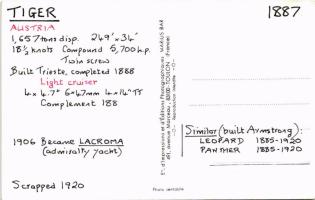 TIGER
1887
AUSTRIA
1,657 tons disp. 249' x 34'
18½ knots Compound 5,700 h.p.
Twin screw
Built Trieste, completed 1888
Light cruiser
4 x 4.7" 6 x 47mm 4 x 14" TT
Complement 188
1906 Became LACROMA
(admiralty yacht)
Scrapped 1920
Ets d'Impressions et d'Éditions Photographiques MARIUS BAR
Reproduction interdite
Photo véritable
Similar (built Armstrong):
LEOPARD 1885-1920
PANTHER 1885-1920